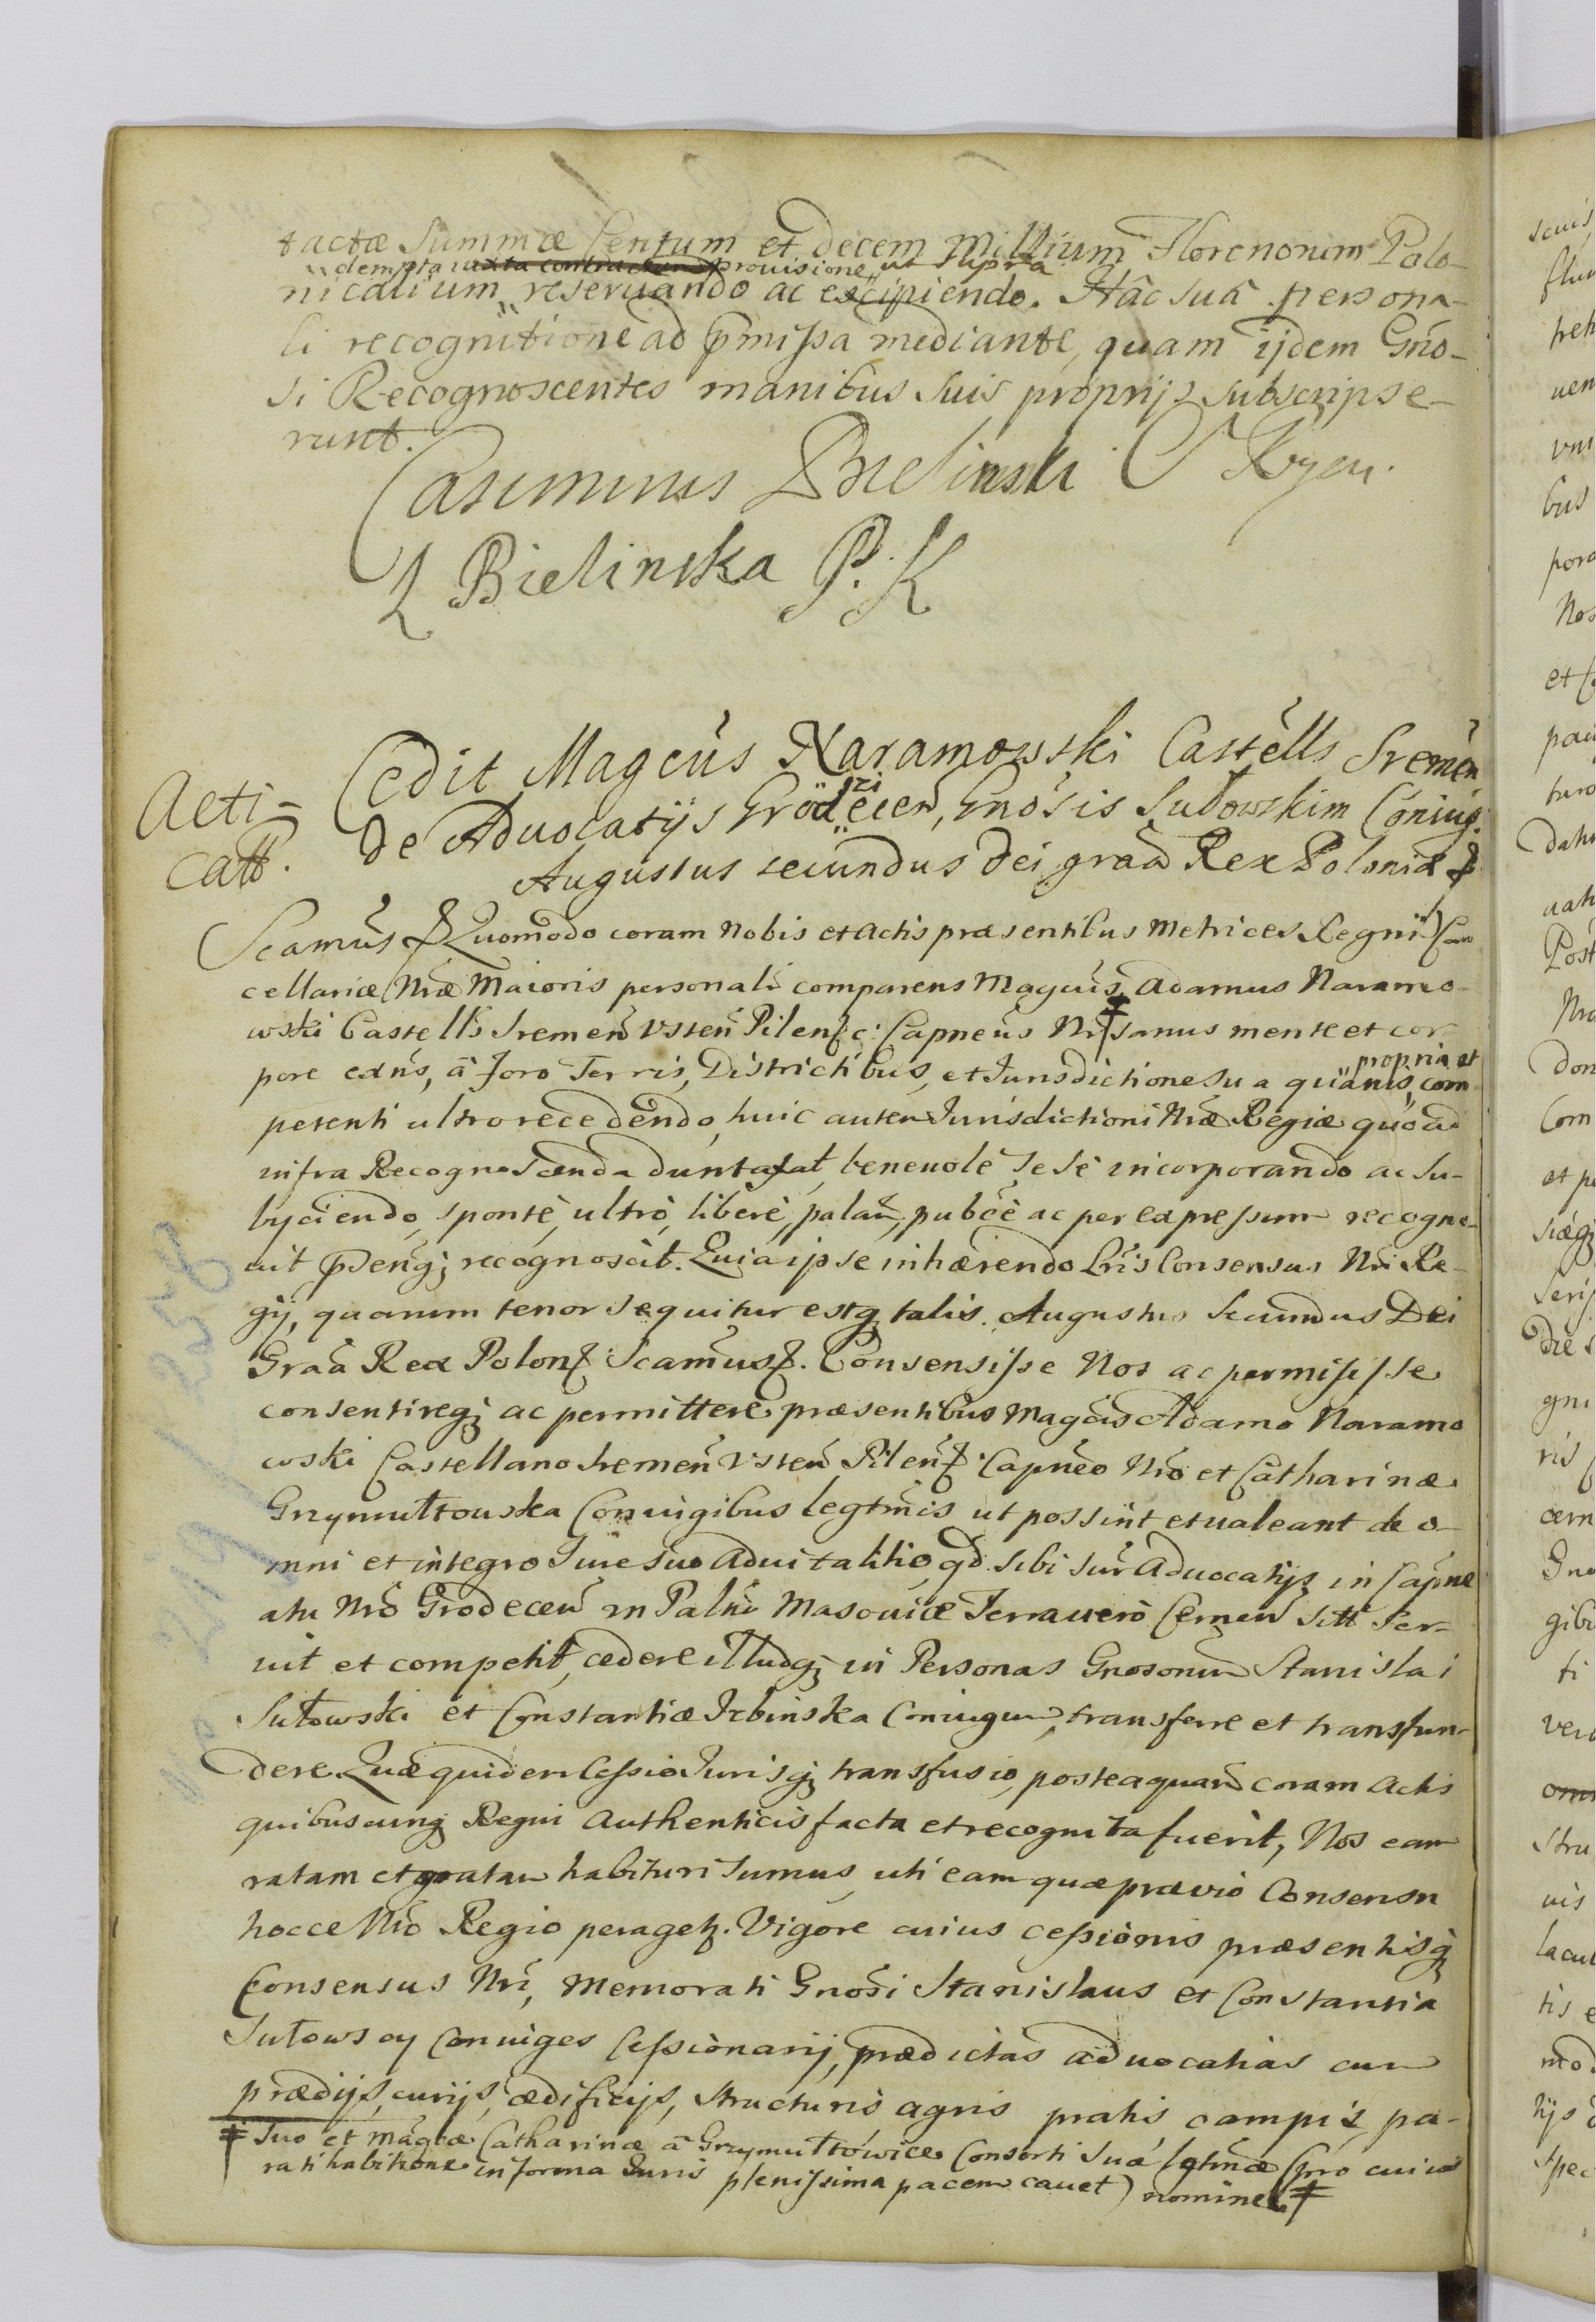 tactæ Summæ Centum et decem Millium Florenorum Polo-
dempta iuxta contractum prouisione ut supra
nicalium reseruando ac excipiendo. Hâc suâ persona-
li recognitione ad p̃missa mediante, quam ijdem Gño-
si Recognoscentes manibus suis proprijs subscripse-
runt.
Casimirus Bielinski
L Bielinska P. K
Acti-
catt.
Cedit Magcũs Naramowski Castells Sremeñ
de Aduocatijs Grodzieceñ, Gnosis Sułowskim Coniug.
Augustus secundus Dei graã Rex Poloniæ
Scamũs Quomodo coram Nobis et Actis præsentibus Metrices Regni Can
cellariæ Nræ Maioris personalr comparens Magcus Adamus Naramo-
wski Castells Sremeñ Vsteñ Pilenq c: Capneus Nr sanus mente et cor-
propria et
pore exñs, â Foro Terris, Districtibus, et Jurisdictione sua quauis, com
petenti ultro recedendo, huic autem Jurisdictioni Nræ Regiæ quoad
infra Recognoscenda duntaxat, beneuole sese incorporando ac su-
byciendo, sponte, ultro, libere, palam, pubce ac per expressum recogno-
uit p̃senq; recognoscit. Quia ipse inhærendo Lris Consensus Nri Re-
gij, quarum tenor sequitur estq; talis. Augustus Secundus Dei
Graã Rex Polon Scamus. Consensisse Nos ac permisisse
consentireq; ac permittere præsentibus Magcis Adamo Naramo
wski Castellano Sremeñ Vsteñ Pilen Capneo Nro et Catharinæ
Grzymułtowska Coniugibus legtmis ut possint et ualeant de o-
mni et integro Jure suo aduitalitio, qd sibi sur Aduocatijs in Capne
atu Nro Grodeceñ in Palnũ Masouiæ Terra uero Cerneñ sitt ser-
uit et competit, cedere illudq; in Personas Gnosorum Stanislai
Sułowski et Constantiæ Irbinska Coniugum, transferre et transfun-
dere. Quæ quidem Cessio Jurisq; transfusio, posteaquam coram Actis
quibuscunq Regni Authenticis facta et recognita fuerit, Nos eam
ratam et gratam habituri sumus, uti eam quæ præuio Consensu
hocce Nro Regio peragetz. Vigore cuius cessionis præsentisq;
Consensus Nri, Memorati Gnosi Stanislaus et Constantia
Sułowscy Coniuges Cessionarij, prædictas aduocatias cum
prædijs, curijs, ædificijs, structuris agris pratis campis pa-
‡ Suo et Magcæ Catharinæ â Grzymułtowice Consorti Suâ lgtmæ (pro cuius
ratihabitione in forma Juris plenissima pacem cauet) nomine ‡